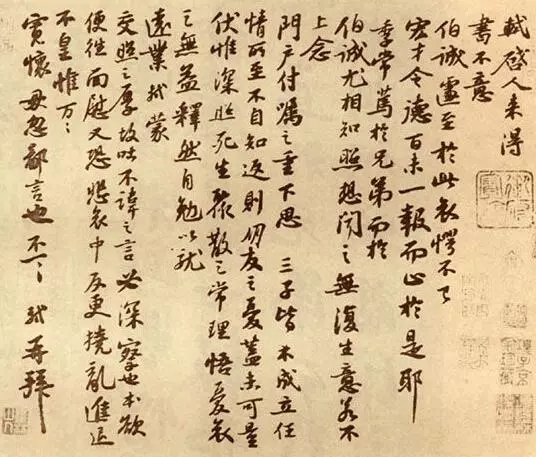 軾啓人來得
書不意
伯誠遽至於此哀愕不已
宏才令德百未一報而止於是耶
季常篤於兄弟而於
伯誠尤相知照想聞之無復生意若不
上念
門户付囑之重下思三子皆未成立任
情所至不自知返則朋友之憂蓋未可量
伏惟深照死生聚散之常理悟憂哀
之無益釋然自勉以就
遠業軾蒙
交照之厚故吐不諱之言必深察也本欲
便往面慰又恐悲哀中反更撓亂進退
不皇惟万〻
寬懷毋忽鄙言也不一〻軾再拜